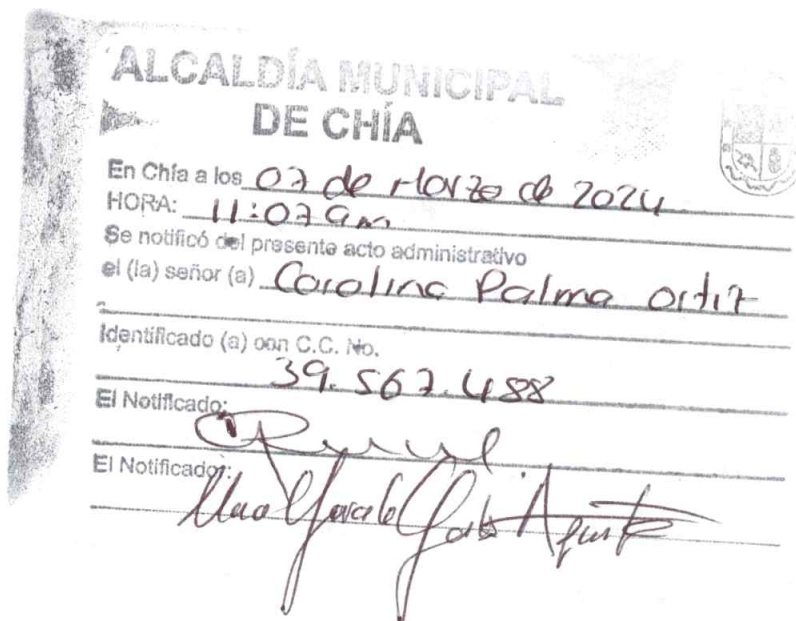 ALCALDÍA MUNICIPAL
DE CHÍA
En Chía a los 07 de Marzo de 2024
HORA: 11:07 am
Se notificó del presente acto administrativo
el (la) señor (a) Carolina Palma Ortiz
Identificado (a) con C.C. No.
39.567.488
El Notificado:
El Notificador: